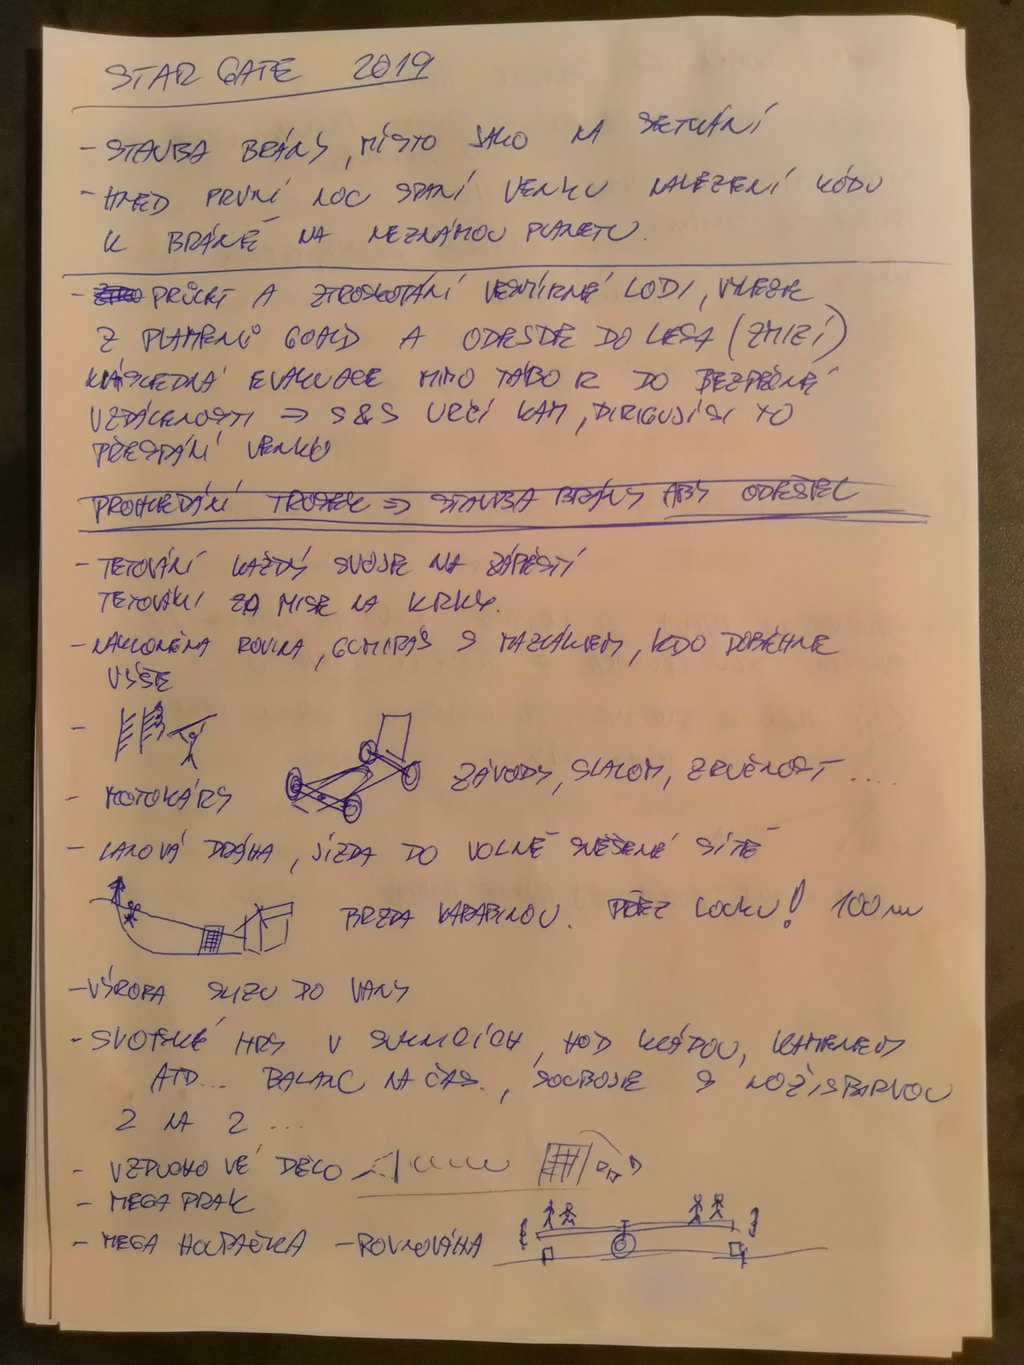 STAR GATE 2019
- STAVBA BRÁNY, MÍSTO JAKO NA SETKÁNÍ
- HNED PRVNÍ NOC SPANÍ VENKU NALEZENÍ KÓDU
K BRÁNĚ NA NEZNÁMOU PLANETU.
- PRŮLET A ZTROSKOTÁNÍ VESMÍRNÉ LODI, VYLEZE
Z PLAMENŮ GOALD A ODEJDE DO LESA (ZMIZÍ)
NÁSLEDNÁ EVAKUACE MIMO TÁBOR DO BEZPEČNÉ
VZDÁLENOSTI ⇒ S&S URČÍ KAM, DIRIGUJÍ SI TO
PŘESPÁNÍ VENKU
PROHLEDÁNÍ TROSEK ⇒ STAVBA BRÁNY ABY ODEŠEL
- TETOVÁNÍ KAŽDÝ SVOJE NA ZÁPĚSTÍ
TETOVÁNÍ ZA MISE NA KRKY.
- NAKLONĚNÁ ROVINA, GUMIPÁS S MAZLÁKEM, KDO DOBĚHNE
VÝŠE
-
- MOTOKÁRY ZÁVODY, SLALOM, ZRUČNOST ....
- LANOVÁ DRÁHA, JÍZDA DO VOLNĚ SVĚŠENÉ SÍTĚ
BRZDA KARABINOU. PŘEZ LOUKU! 100m
- VÝROBA SLIZU DO VANY
- SKOTSKÉ HRY V SUKNÍCÍCH, HOD KLÁDOU, KAMENEM
ATD... BALANC NA ČAS., SOUBOJE S NOŽI S BARVOU
2 NA 2 ...
- VZDUCHOVÉ DĚLO
- MEGA PRAK
- MEGA HOUPAČKA - ROVNOVÁHA